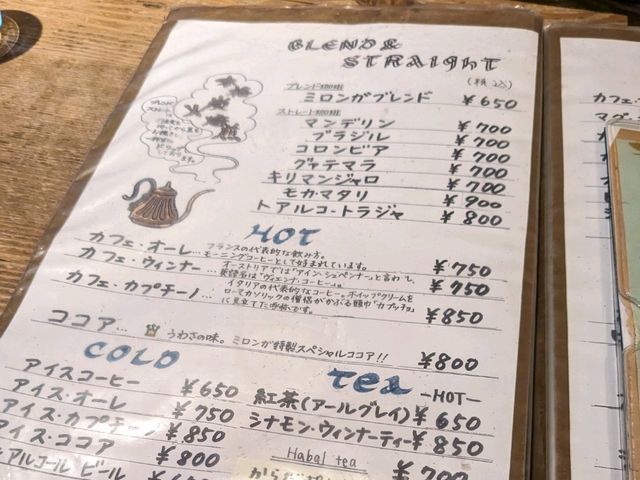 BLEND &
STRAIGHT
(税込)
ブレンド珈琲
ミロンガブレンド ¥650
ストレート珈琲
マンデリン ¥700
ブラジル ¥700
コロンビア ¥700
グァテマラ ¥700
キリマンジャロ ¥700
モカ・マタリ ¥900
トアルコ・トラジャ ¥800
HOT
カフェ・オーレ… フランスの代表的な飲み方。
モーニングコーヒーとして好まれています。 ¥750
カフェ・ウィンナー… オーストリアでは「アイン・シュペンナー」と言わ
英語名は「ヴィエンナ・コーヒー」。 ¥750
カフェ・カプチーノ… イタリアの代表的なコーヒー。ホイップクリームを
ローマカソリックの僧侶がかぶる頭巾「カプッチョ」
に見立てた珈琲です。 ¥850
ココア… うわさの味。ミロンガ特製スペシャルココア!! ¥800
COLD
アイスコーヒー ¥650
アイス・オーレ ¥750
アイス・カプチーノ ¥850
アイス・ココア ¥800
アルコール ビール ¥650
Tea
-HOT-
紅茶(アールグレイ) ¥650
シナモン・ウィンナーティー ¥850
Habal tea
¥700
カフェ
マグ